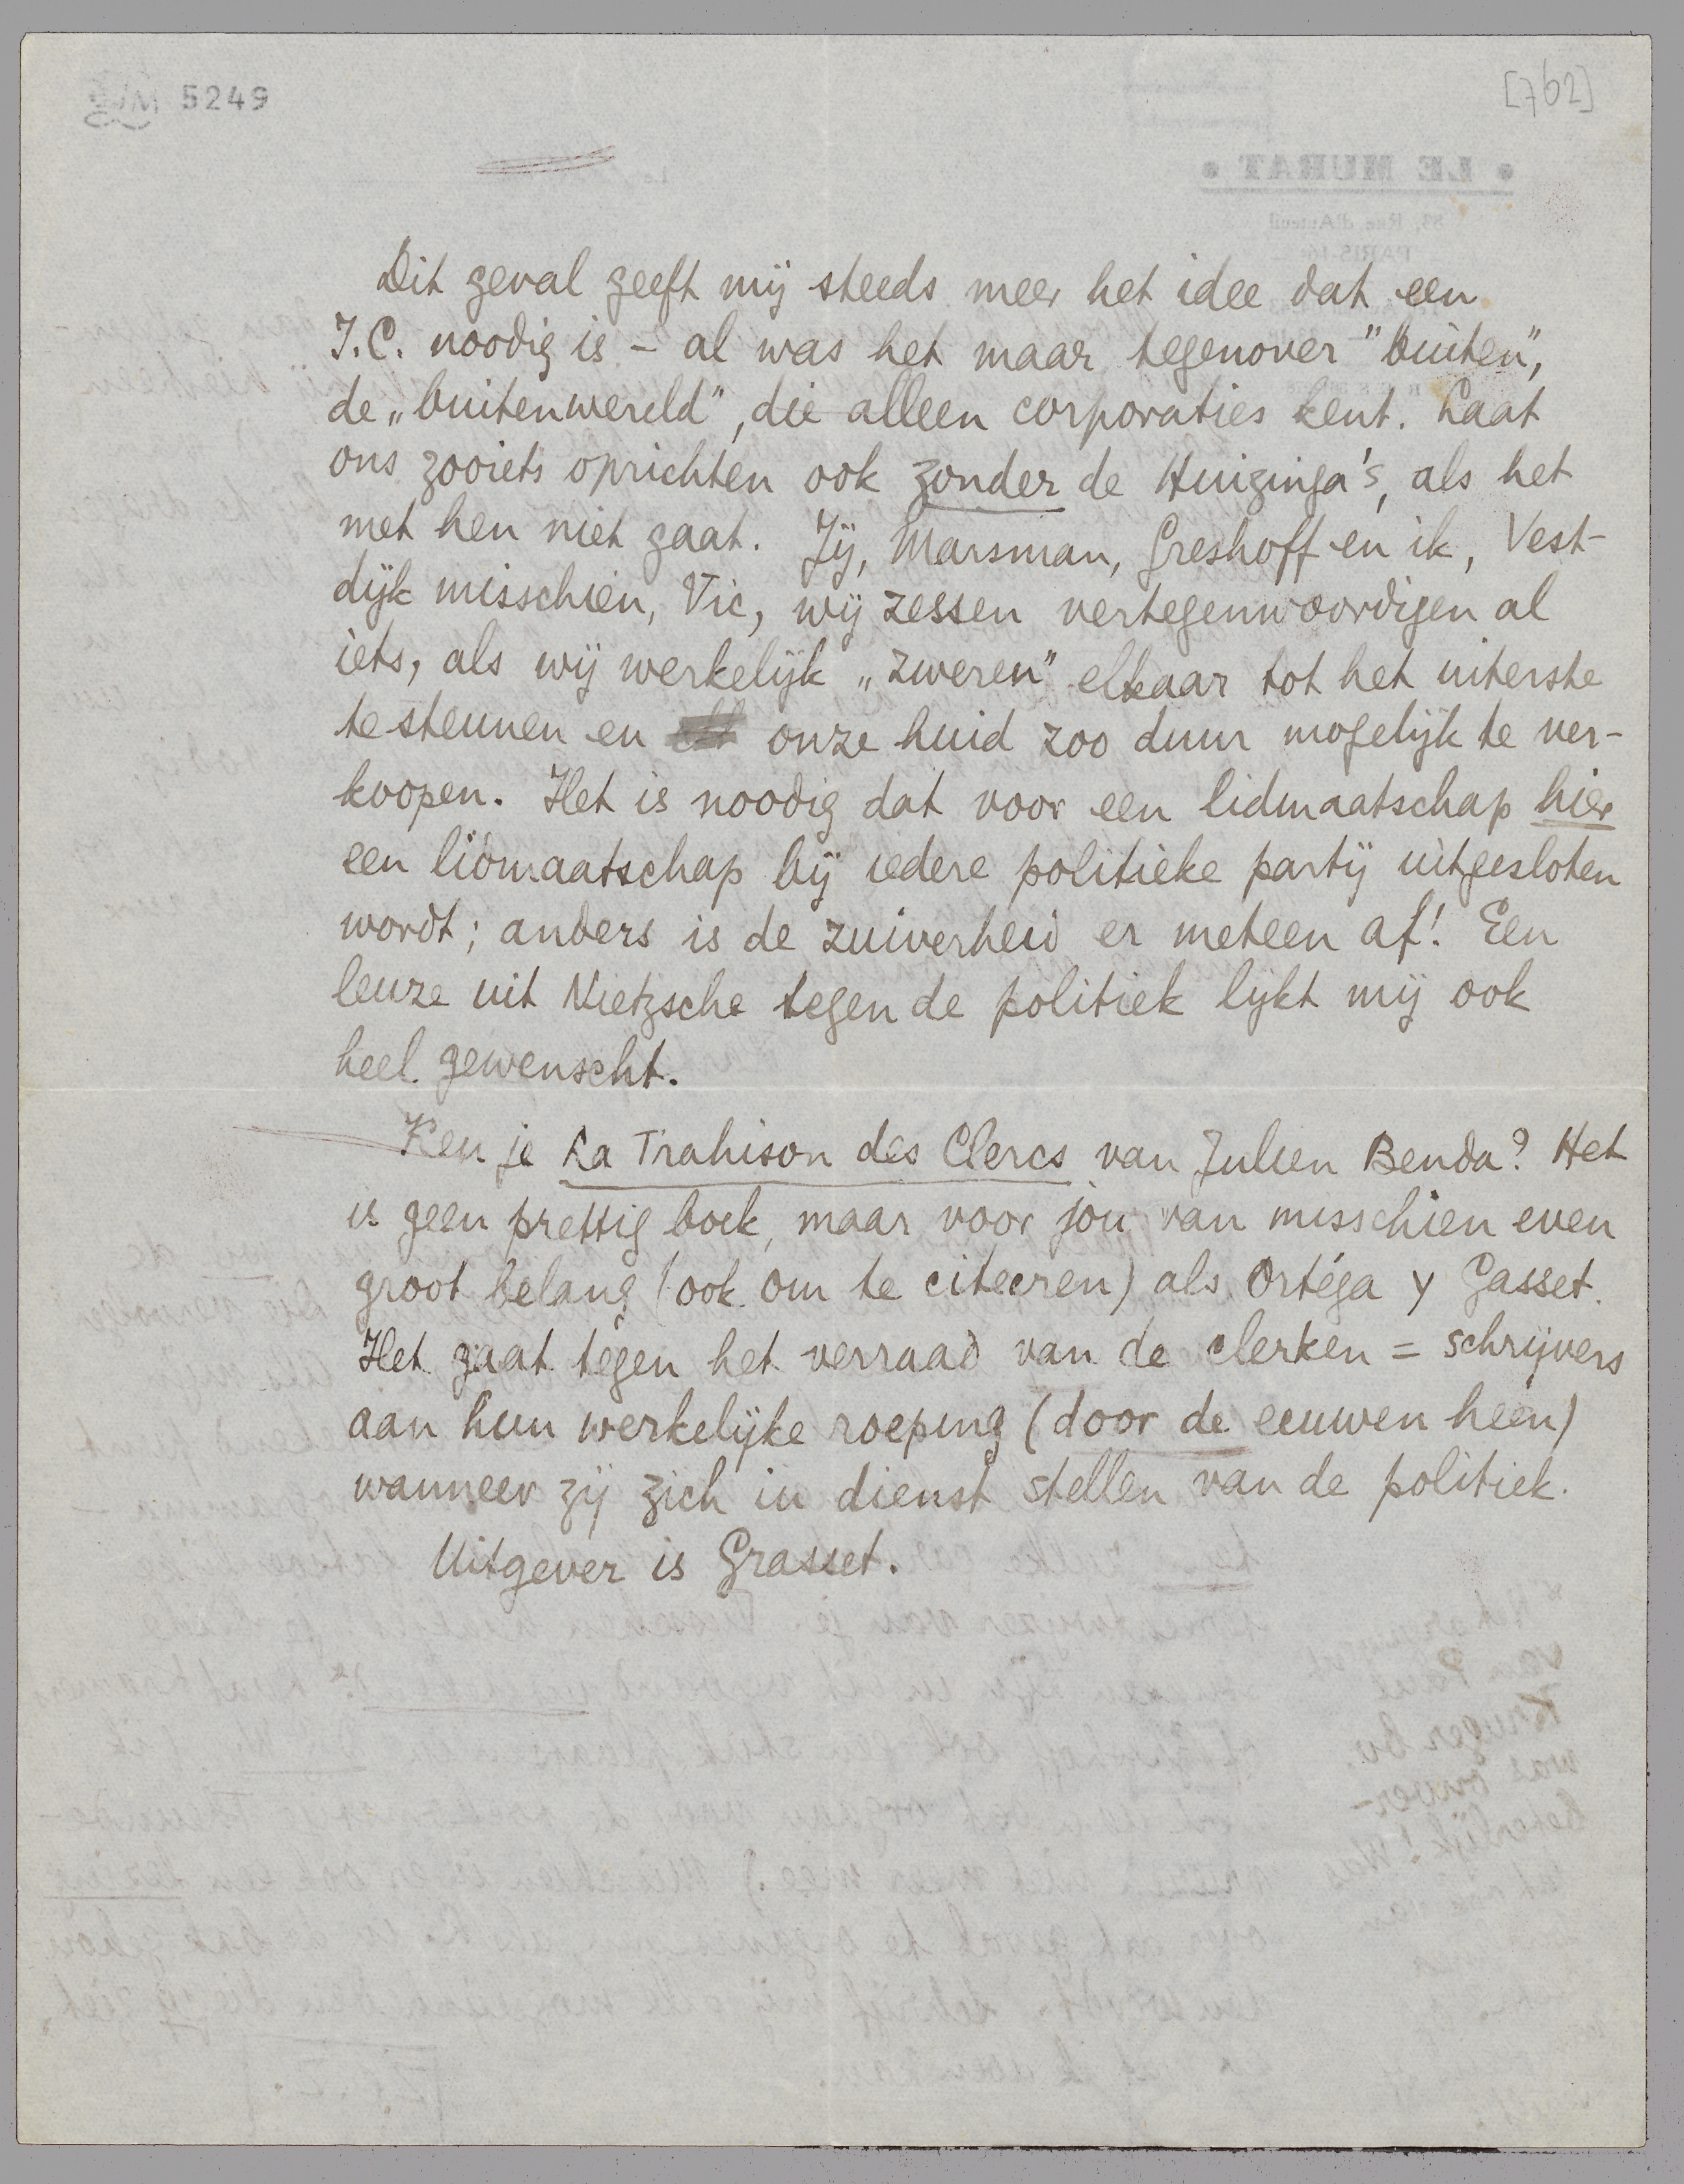 5249
[762]
Dit geval geeft mij steeds meer het idee dat een
I.C. noodig is – al was het maar tegenover "buiten",
de „buitenwereld", die alleen corporaties kent. Laat
ons zooiets oprichten ook zonder de Huizinga's, als het
met hen niet gaat. Jij, Marsman, Greshoff en ik, Vest-
dijk misschien, Vic, wij zessen vertegenwoordigen al
iets, als wij werkelijk „zweren" elkaar tot het uiterste
te steunen en onze huid zoo duur mogelijk te ver-
koopen. Het is noodig dat voor een lidmaatschap hier
een lidmaatschap bij iedere politieke partij uitgesloten
wordt; anders is de zuiverheid er meteen af! Een
leuze uit Nietzsche tegen de politiek lijkt mij ook
heel gewenscht.
Ken je La Trahison des Clercs van Julien Benda? Het
is geen prettig boek, maar voor jou van misschien even
groot belang (ook om te citeeren) als Ortéga y Gasset.
Het gaat tegen het verraad van de clerken = schrijvers
aan hun werkelijke roeping (door de eeuwen heen)
wanneer zij zich in dienst stellen van de politiek.
Uitgever is Grasset.
• LE MURAT •
83, Rue d'Auteuil
PARIS-16e